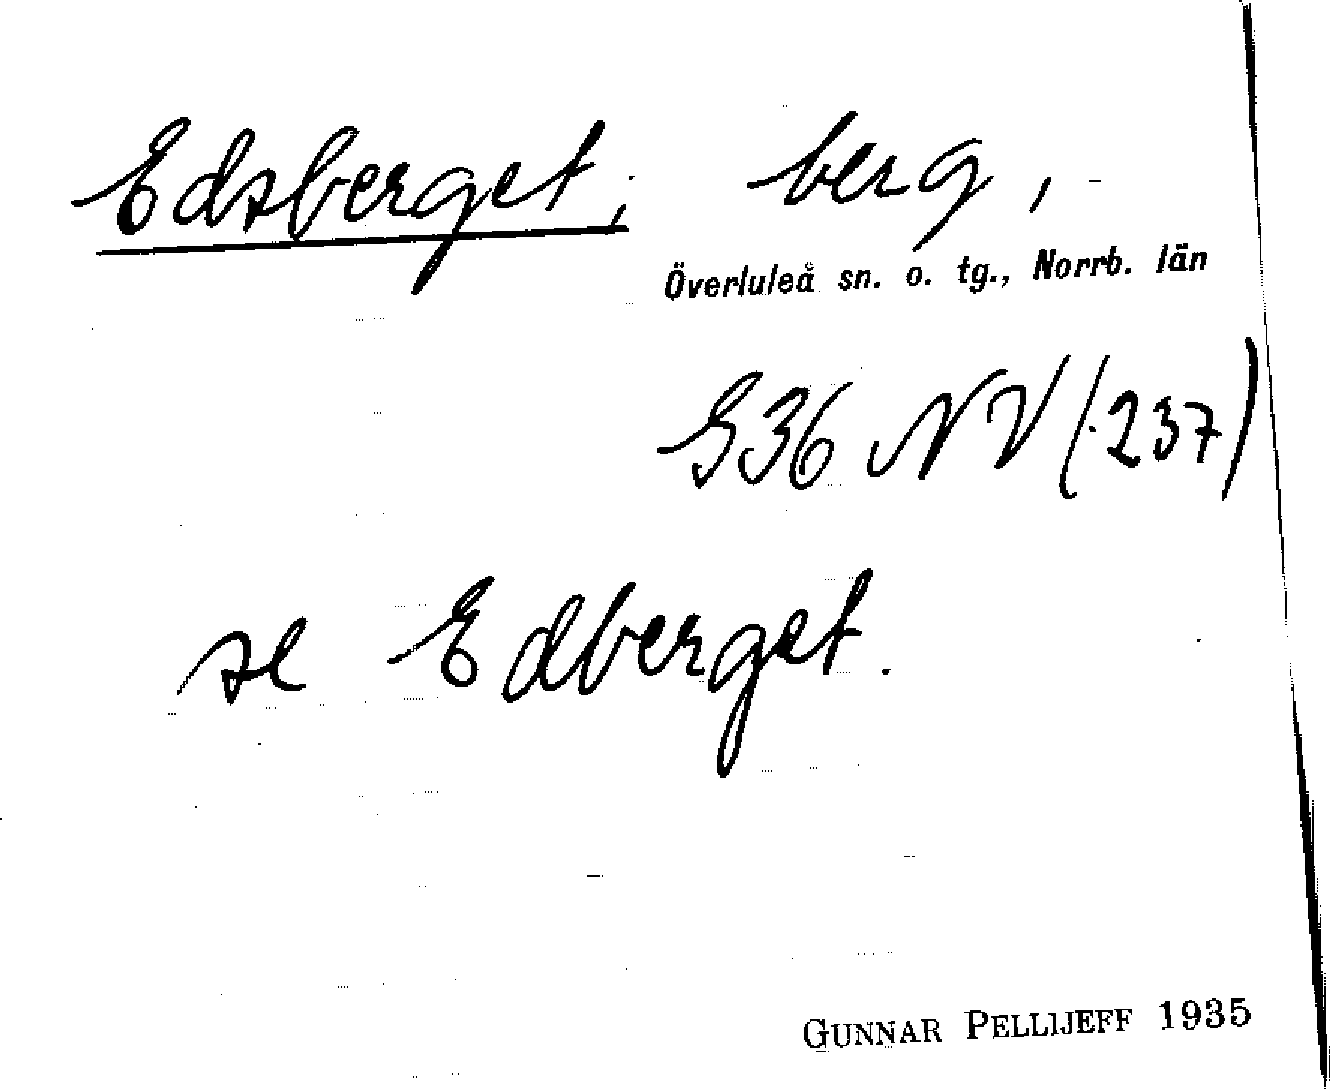 Edsberget, berg,
Överluleå sn. o. tg., Norrb. län
S36 NV (237)
se Edberget.
GUNNAR PELLIJEFF 1935